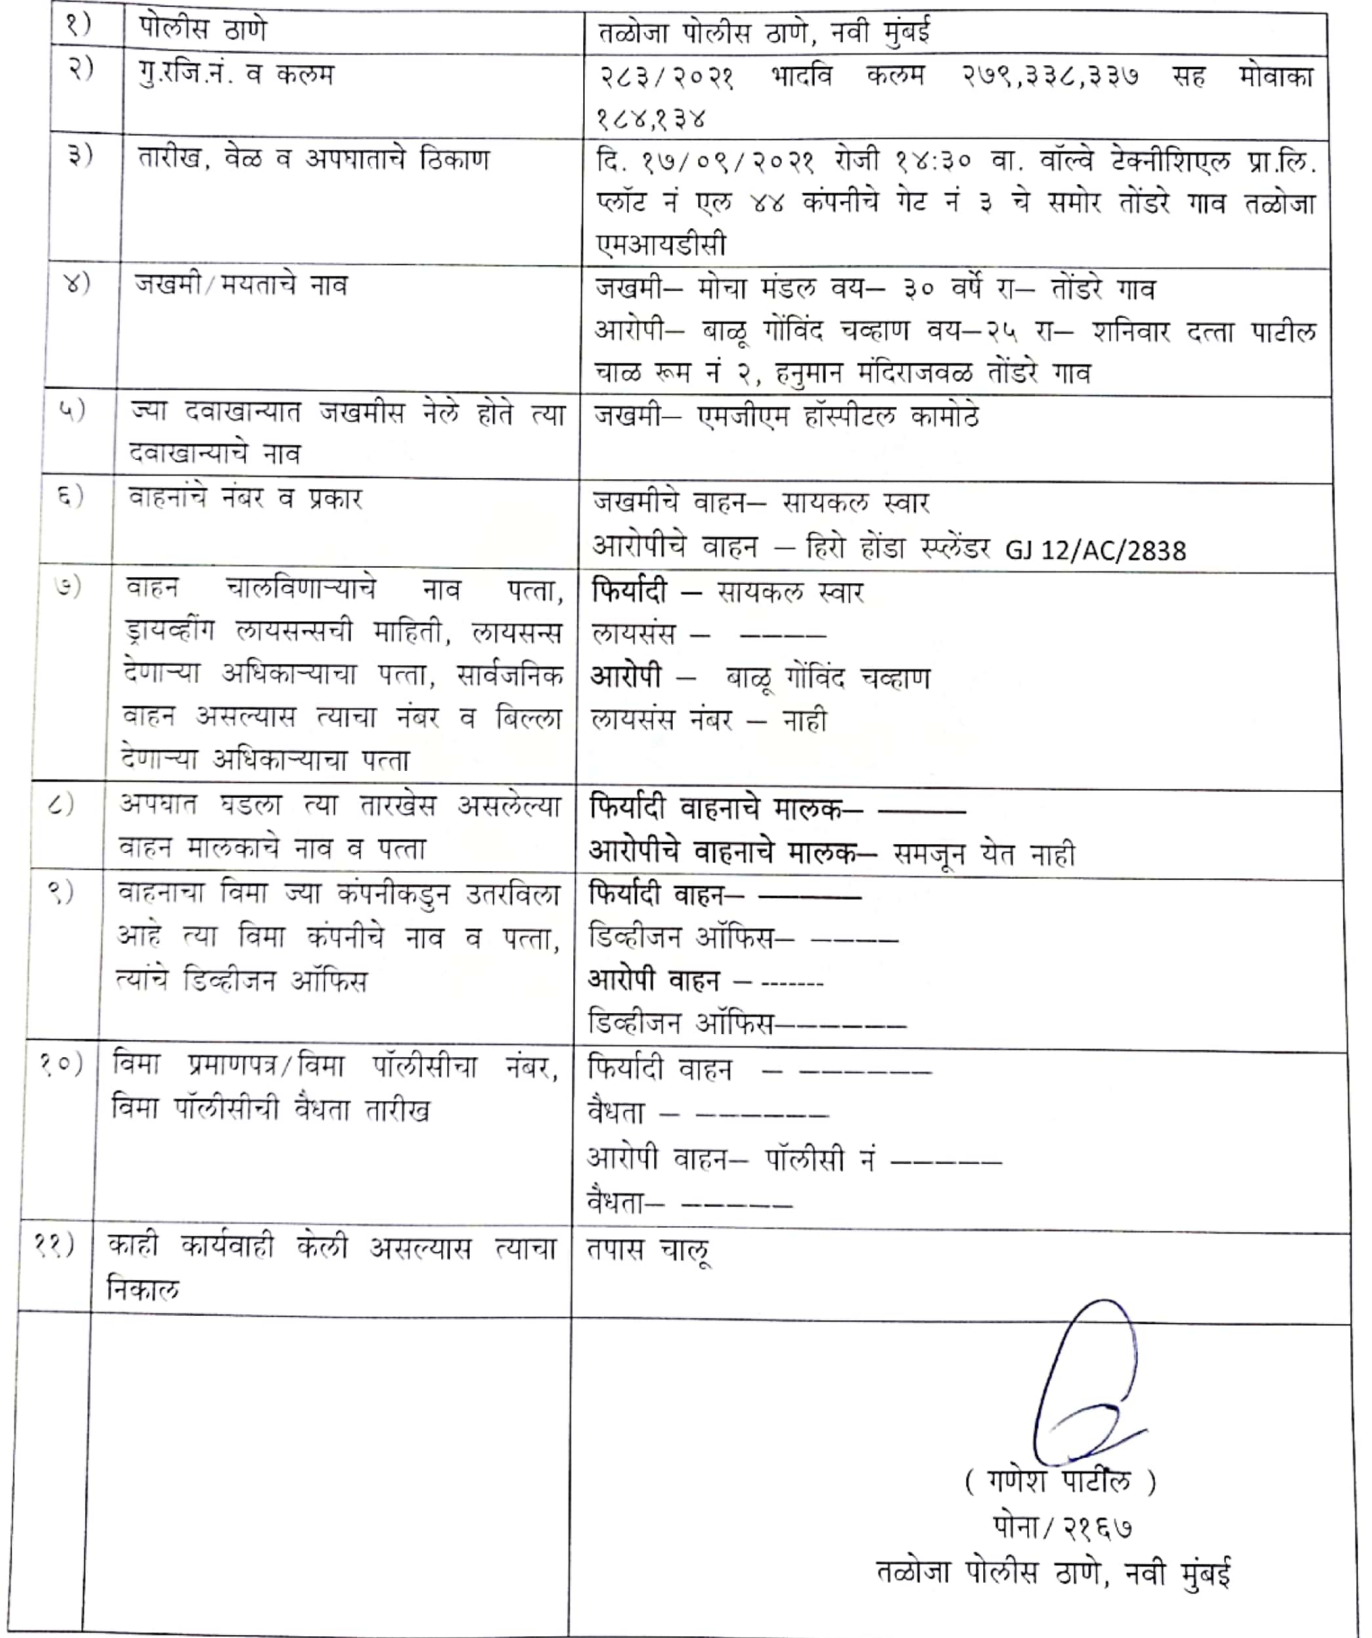 १) पोलीस ठाणे तळोजा पोलीस ठाणे, नवी मुंबई
२) गु.रजि.नं. व कलम २८३/२०२१ भादवि कलम २७९,३३८,३३७ सह मोवाका
१८४,१३४
३) तारीख, वेळ व अपघाताचे ठिकाण दि. १७/०९/२०२१ रोजी १४:३० वा. वॉल्वे टेक्नीशिएल प्रा.लि.
प्लॉट नं एल ४४ कंपनीचे गेट नं ३ चे समोर तोंडरे गाव तळोजा
एमआयडीसी
४) जखमी/मयताचे नाव जखमी– मोचा मंडल वय– ३० वर्षे रा– तोंडरे गाव
आरोपी– बाळू गोंविंद चव्हाण वय–२५ रा– शनिवार दत्ता पाटील
चाळ रूम नं २, हनुमान मंदिराजवळ तोंडरे गाव
५) ज्या दवाखान्यात जखमीस नेले होते त्या
दवाखान्याचे नाव
जखमी– एमजीएम हॉस्पीटल कामोठे
६) वाहनांचे नंबर व प्रकार जखमीचे वाहन– सायकल स्वार
आरोपीचे वाहन – हिरो होंडा स्प्लेंडर GJ 12/AC/2838
७) वाहन चालविणाऱ्याचे नाव पत्ता,
ड्रायव्हींग लायसन्सची माहिती, लायसन्स
देणाऱ्या अधिकाऱ्याचा पत्ता, सार्वजनिक
वाहन असल्यास त्याचा नंबर व बिल्ला
देणाऱ्या अधिकाऱ्याचा पत्ता
फिर्यादी – सायकल स्वार
लायसंस – ––––
आरोपी – बाळू गोंविंद चव्हाण
लायसंस नंबर – नाही
८) अपघात घडला त्या तारखेस असलेल्या
वाहन मालकाचे नाव व पत्ता
फिर्यादी वाहनाचे मालक– ––––
आरोपीचे वाहनाचे मालक– समजून येत नाही
९) वाहनाचा विमा ज्या कंपनीकडुन उतरविला
आहे त्या विमा कंपनीचे नाव व पत्ता,
त्यांचे डिव्हीजन ऑफिस
फिर्यादी वाहन– –––––
डिव्हीजन ऑफिस– ––––
आरोपी वाहन – -------
डिव्हीजन ऑफिस––––––
१०) विमा प्रमाणपत्र/विमा पॉलीसीचा नंबर,
विमा पॉलीसीची वैधता तारीख
फिर्यादी वाहन – ––––––
वैधता – ––––––
आरोपी वाहन– पॉलीसी नं –––––
वैधता– –––––
११) काही कार्यवाही केली असल्यास त्याचा
निकाल
तपास चालू
( गणेश पाटील )
पोना/२१६७
तळोजा पोलीस ठाणे, नवी मुंबई